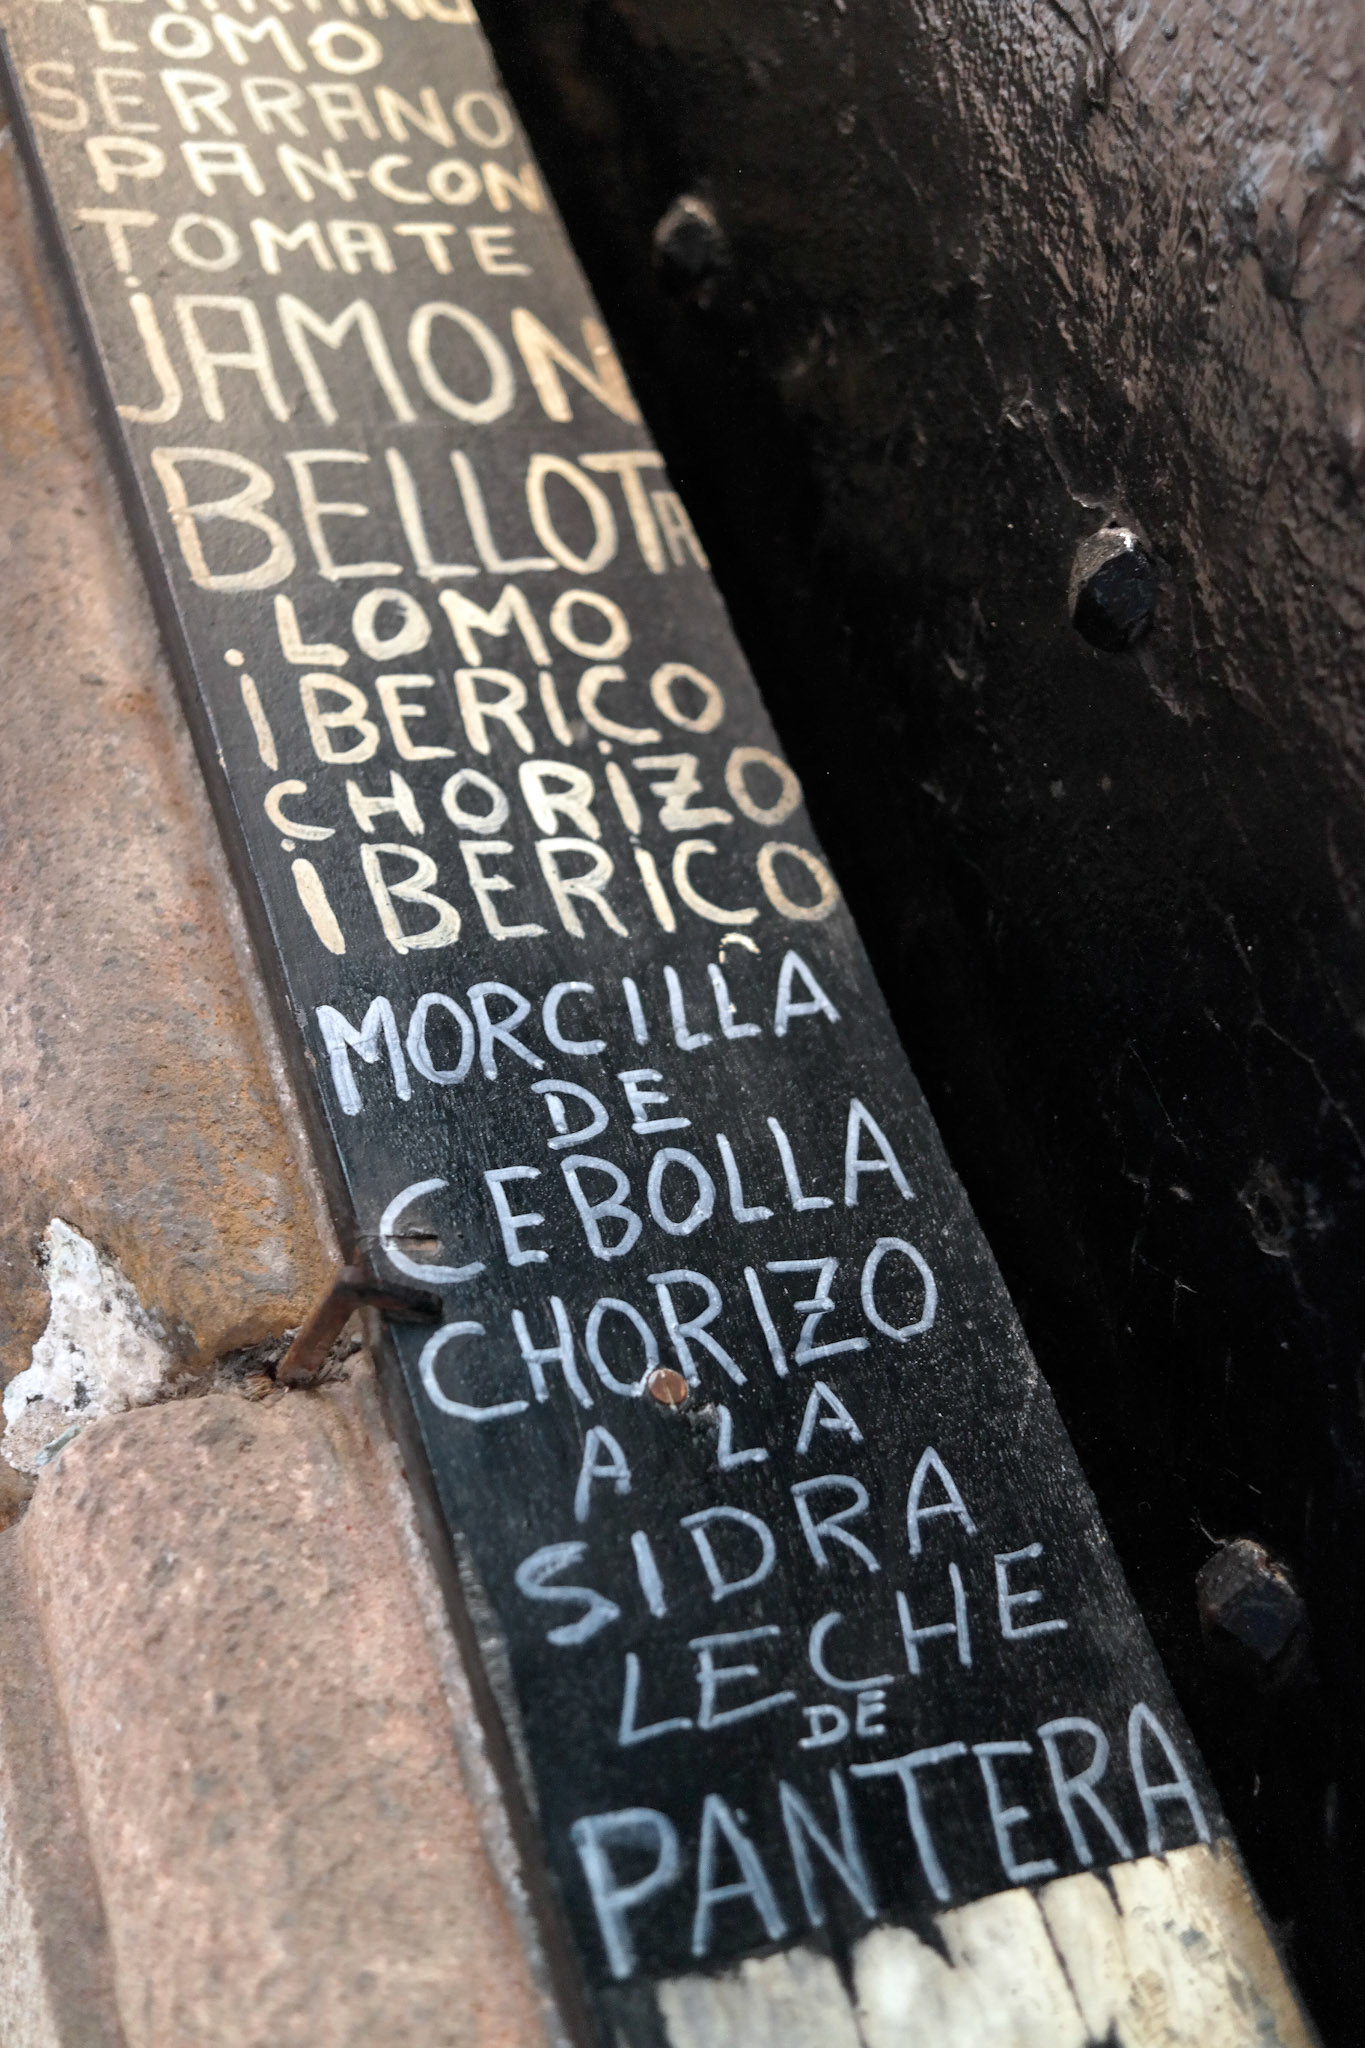 LOMO
SERRANO
PAN-CON
TOMATE
JAMON
BELLOTA
LOMO
iBERICO
CHORiZO
iBERICO
MORCILLA
DE
CEBOLLA
CHORIZO
A LA
SIDRA
LECHE
DE
PANTERA